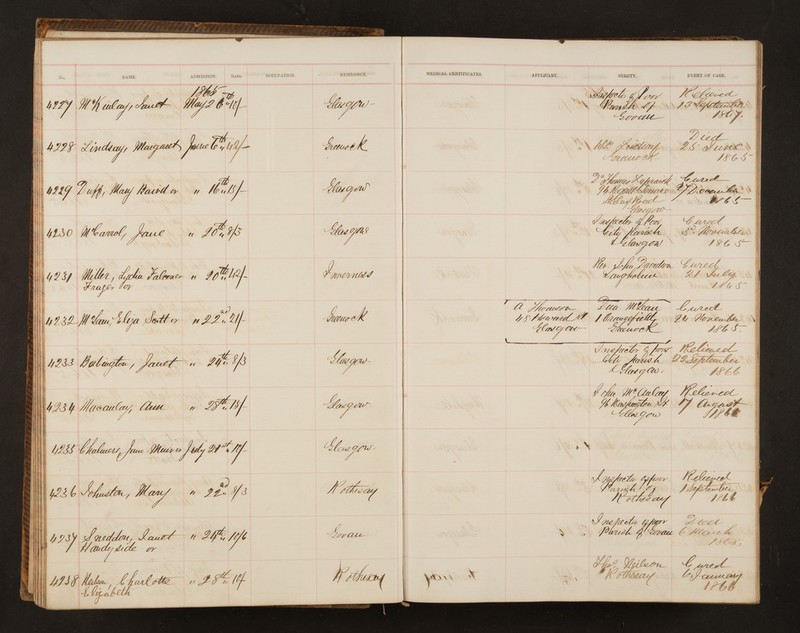 No. NAME. ADMISSION. Rate. OCCUPATION. RESIDENCE. MEDICAL CERTIFICATES. APPLICANT. SURETY. EVENT OF CASE.
1865
4227 McKinlay, Janet May 26th 15/- Glasgow Inspector of Poor Relieved
Parish of 13 September
Govan 1867.
4228 Lindsay, Margaret June 6th Greenock Lindsay Died
Greenock 25 June
1865
4229 Duff, Mary Baird or " 16th 15/- Glasgow Dr Thomas Cured
27 December
Glasgow 1865
4230 McCarrol, Jane " 20th 8/3 Glasgow Inspector of Poor Cured
City Parish 5th November
Glasgow 1865
4231 Miller, Lydia Falconer " 20th Inverness Rev. John Davidson Cured
Frazer or 21 July
1865
4232 McLean, Eliza Scott or " 22nd 21/- Greenock A Thomson Dun. McLean Cured
48 Howard St 1 Orangefield 92 November
Glasgow Greenock 1865
4233 Babington, Janet " 24th 8/3 Glasgow Inspector of Poor Relieved
City Parish 22 September
Glasgow 1866
4234 Macaulay, Ann " 28th 15/- Glasgow John McAulay Relieved
96 Washington St 17 August
Glasgow 1866
4235 Chalmers, Jane Muir or July 21st Glasgow
4236 Johnston, Mary " 22nd 8/3 Rothesay Inspector of poor Relieved
Parish of 1 September
Rothesay 1866
4237 Sneddon, Janet " 24th 10/6 Govan Inspector of poor Died
Handyside or Parish of Govan 6 March
1868.
4238 Neilson, Charlotte " 28th Rothesay Thos. Neilson Cured
Elizabeth Rothesay 6 January
1866